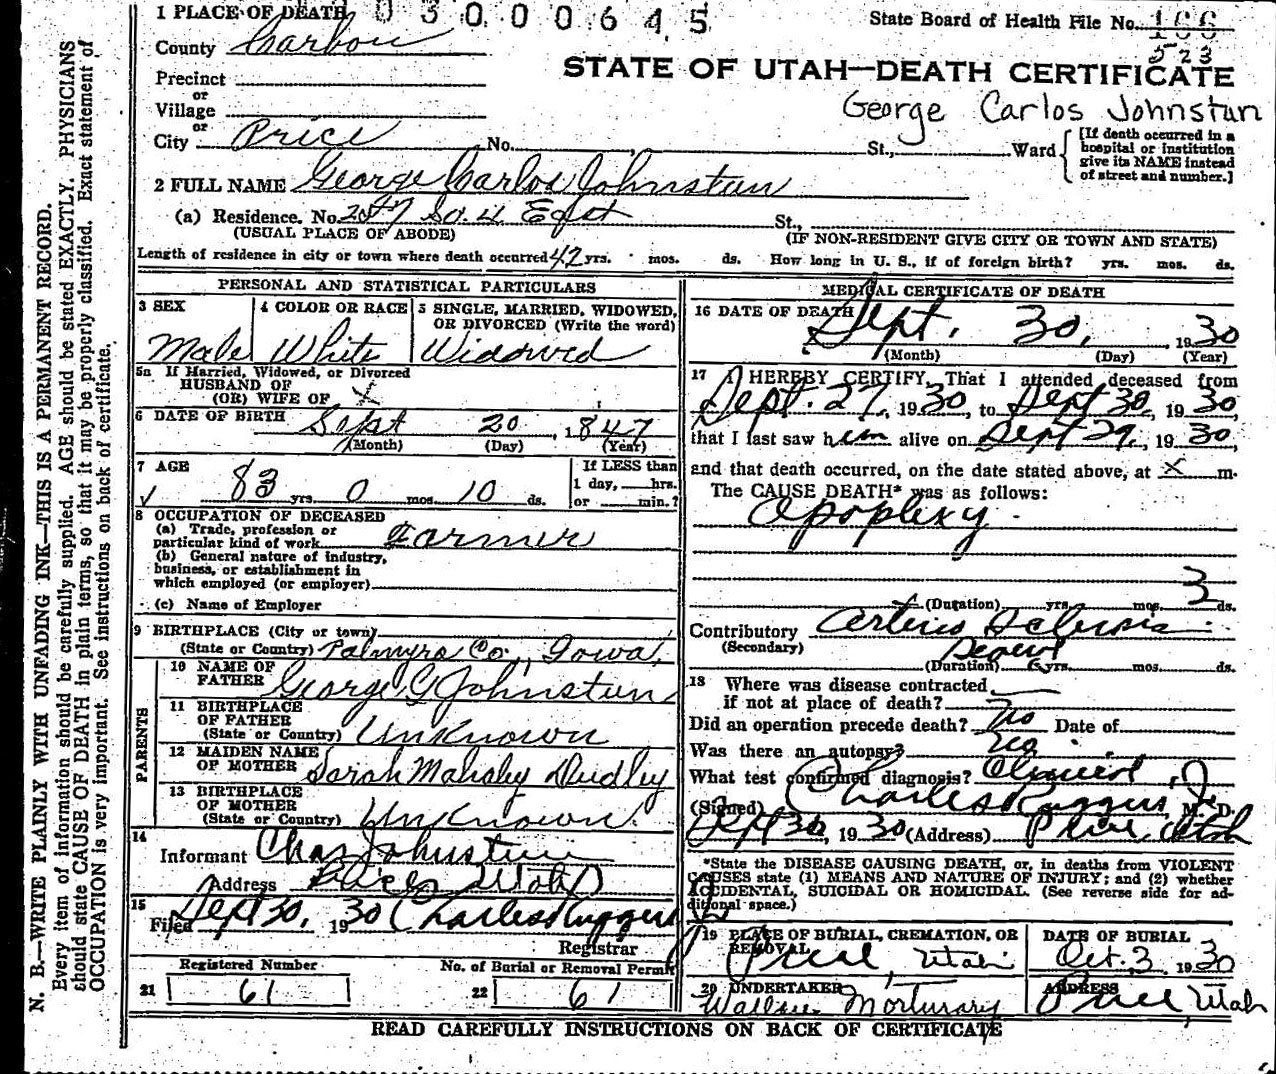 1 PLACE OF DEATH 3 0 0 0 0 6 4 5 State Board of Health File No. 166
523
County Carbon
STATE OF UTAH—DEATH CERTIFICATE
Precinct
or
Village
George Carlos Johnstun
or
City Price No. St., Ward [If death occurred in a hospital or institution give its NAME instead of street and number.]
2 FULL NAME George Carlos Johnstun
(a) Residence. No. 247 So. 4 East St.,
(USUAL PLACE OF ABODE) (IF NON-RESIDENT GIVE CITY OR TOWN AND STATE)
Length of residence in city or town where death occurred 42 yrs. mos. ds. How long in U. S., if of foreign birth? yrs. mos. ds.
N. B.—WRITE PLAINLY WITH UNFADING INK—THIS IS A PERMANENT RECORD.
Every item of information should be carefully supplied. AGE should be stated EXACTLY. PHYSICIANS
should state CAUSE OF DEATH in plain terms, so that it may be properly classified. Exact statement of
OCCUPATION is very important. See instructions on back of certificate.
PERSONAL AND STATISTICAL PARTICULARS
3 SEX
Male
4 COLOR OR RACE
White
5 SINGLE, MARRIED, WIDOWED,
OR DIVORCED (Write the word)
Widowed
5a If Married, Widowed, or Divorced
HUSBAND OF
(OR) WIFE OF X
6 DATE OF BIRTH Sept 20, 1847
(Month) (Day) (Year)
7 AGE
83 yrs. 0 mos. 10 ds.
If LESS than
1 day, hrs.
or min.?
8 OCCUPATION OF DECEASED
(a) Trade, profession or
particular kind of work Farmer
(b) General nature of industry,
business, or establishment in
which employed (or employer)
(c) Name of Employer
9 BIRTHPLACE (City or town)
(State or Country) Palmyra Co., Iowa.
PARENTS
10 NAME OF
FATHER George G Johnstun
11 BIRTHPLACE
OF FATHER
(State or Country) Unknown
12 MAIDEN NAME
OF MOTHER Sarah Mahaley Dudley
13 BIRTHPLACE
OF MOTHER
(State or Country) Unknown.
14
Informant Chas Johnstun
Address Price, Utah
15
Filed Sept 30, 1930 Charles Ruggeri Jr
Registrar
Registered Number
21 61
No. of Burial or Removal Permit
22 61
MEDICAL CERTIFICATE OF DEATH
16 DATE OF DEATH
Sept. 30, 1930
(Month) (Day) (Year)
17 I HEREBY CERTIFY, That I attended deceased from
Sept. 27, 1930, to Sept 30, 1930,
that I last saw him alive on Sept 29, 1930,
and that death occurred, on the date stated above, at X m.
The CAUSE DEATH* was as follows:
Apoplexy.
(Duration) yrs. mos. 3 ds.
Contributory Arterio Sclerosis
(Secondary)
(Duration) yrs. mos. ds.
18 Where was disease contracted
if not at place of death?
Did an operation precede death? No Date of
Was there an autopsy? No
What test confirmed diagnosis? Clinical
(Signed) Charles Ruggeri Jr M. D.
Sept 30, 1930 (Address) Price, Utah
*State the DISEASE CAUSING DEATH, or, in deaths from VIOLENT
CAUSES state (1) MEANS AND NATURE OF INJURY; and (2) whether
ACCIDENTAL, SUICIDAL OR HOMICIDAL. (See reverse side for ad-
ditional space.)
19 PLACE OF BURIAL, CREMATION, OR
REMOVAL
Price, Utah
DATE OF BURIAL
Oct. 3, 1930
20 UNDERTAKER
Wallace Morturary
ADDRESS
Price, Utah
READ CAREFULLY INSTRUCTIONS ON BACK OF CERTIFICATE